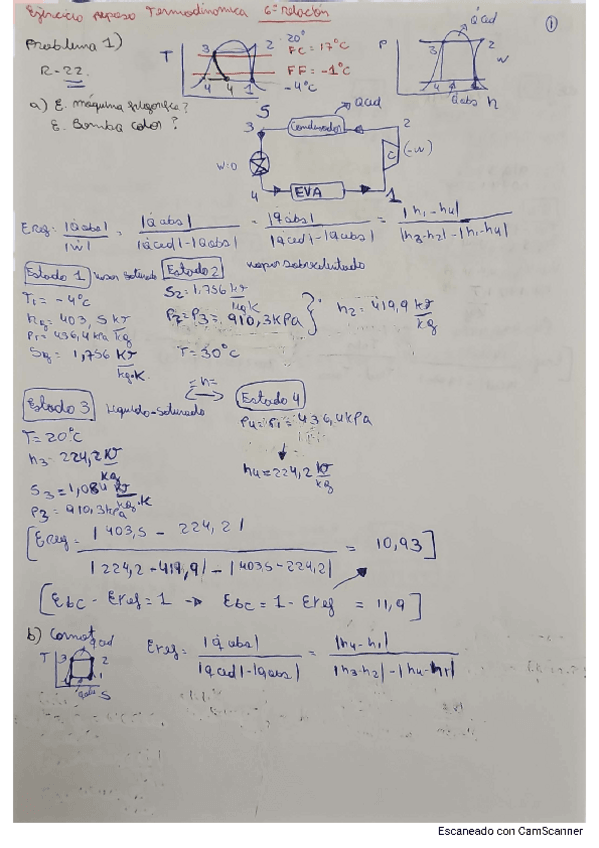 Ejercicio repaso Termodinámica 6ª relación
①
Problema 1)
R-22.
a) E. máquina frigorífica?
E. Bomba calor?
T
3
2
20°
FC = 17°C
FF = -1°C
-4°C
4
4
1
S
P
Q̇ced
3
2
W
4
Q̇abs
h
Q̇ced
3
Condensador
2
W=0
C
(-W)
4
EVA
1
Eref = |Q̇abs| / |Ẇ| = |Q̇abs| / |Q̇ced|-|Q̇abs| = |q̇abs| / |q̇ced|-|q̇abs| = |h1-h4| / |h3-h2|-|h1-h4|
Estado 1 vapor saturado
T1 = -4°C
hg = 403,5 kJ/kg
P1 = 436,4 kPa
Sg = 1,756 kJ/kg·K
Estado 2 vapor sobrecalentado
S2 = 1,756 kJ/kg·K
P2 = P3 = 910,3 kPa } h2 = 419,9 kJ/kg
T = 30°C
Estado 3 líquido-saturado
=h=
T = 20°C
h3 = 224,2 kJ/kg
S3 = 1,084 kJ/kg·K
P3 = 910,3 kPa
Estado 4
P4 = P1 = 436,4 kPa
h4 = 224,2 kJ/kg
[Eref = |403,5 - 224,2| / |224,2-419,9|-|403,5-224,2| = 10,93]
[Ebc - Eref = 1 → Ebc = 1 - Eref = 11,9]
b) Carnot
Q̇ced
T
3
2
1
Q̇abs
S
Eref = |Q̇abs| / |Q̇ced|-|Q̇abs| = |h4-h1| / |h3-h2|-|h4-h1|
Escaneado con CamScanner